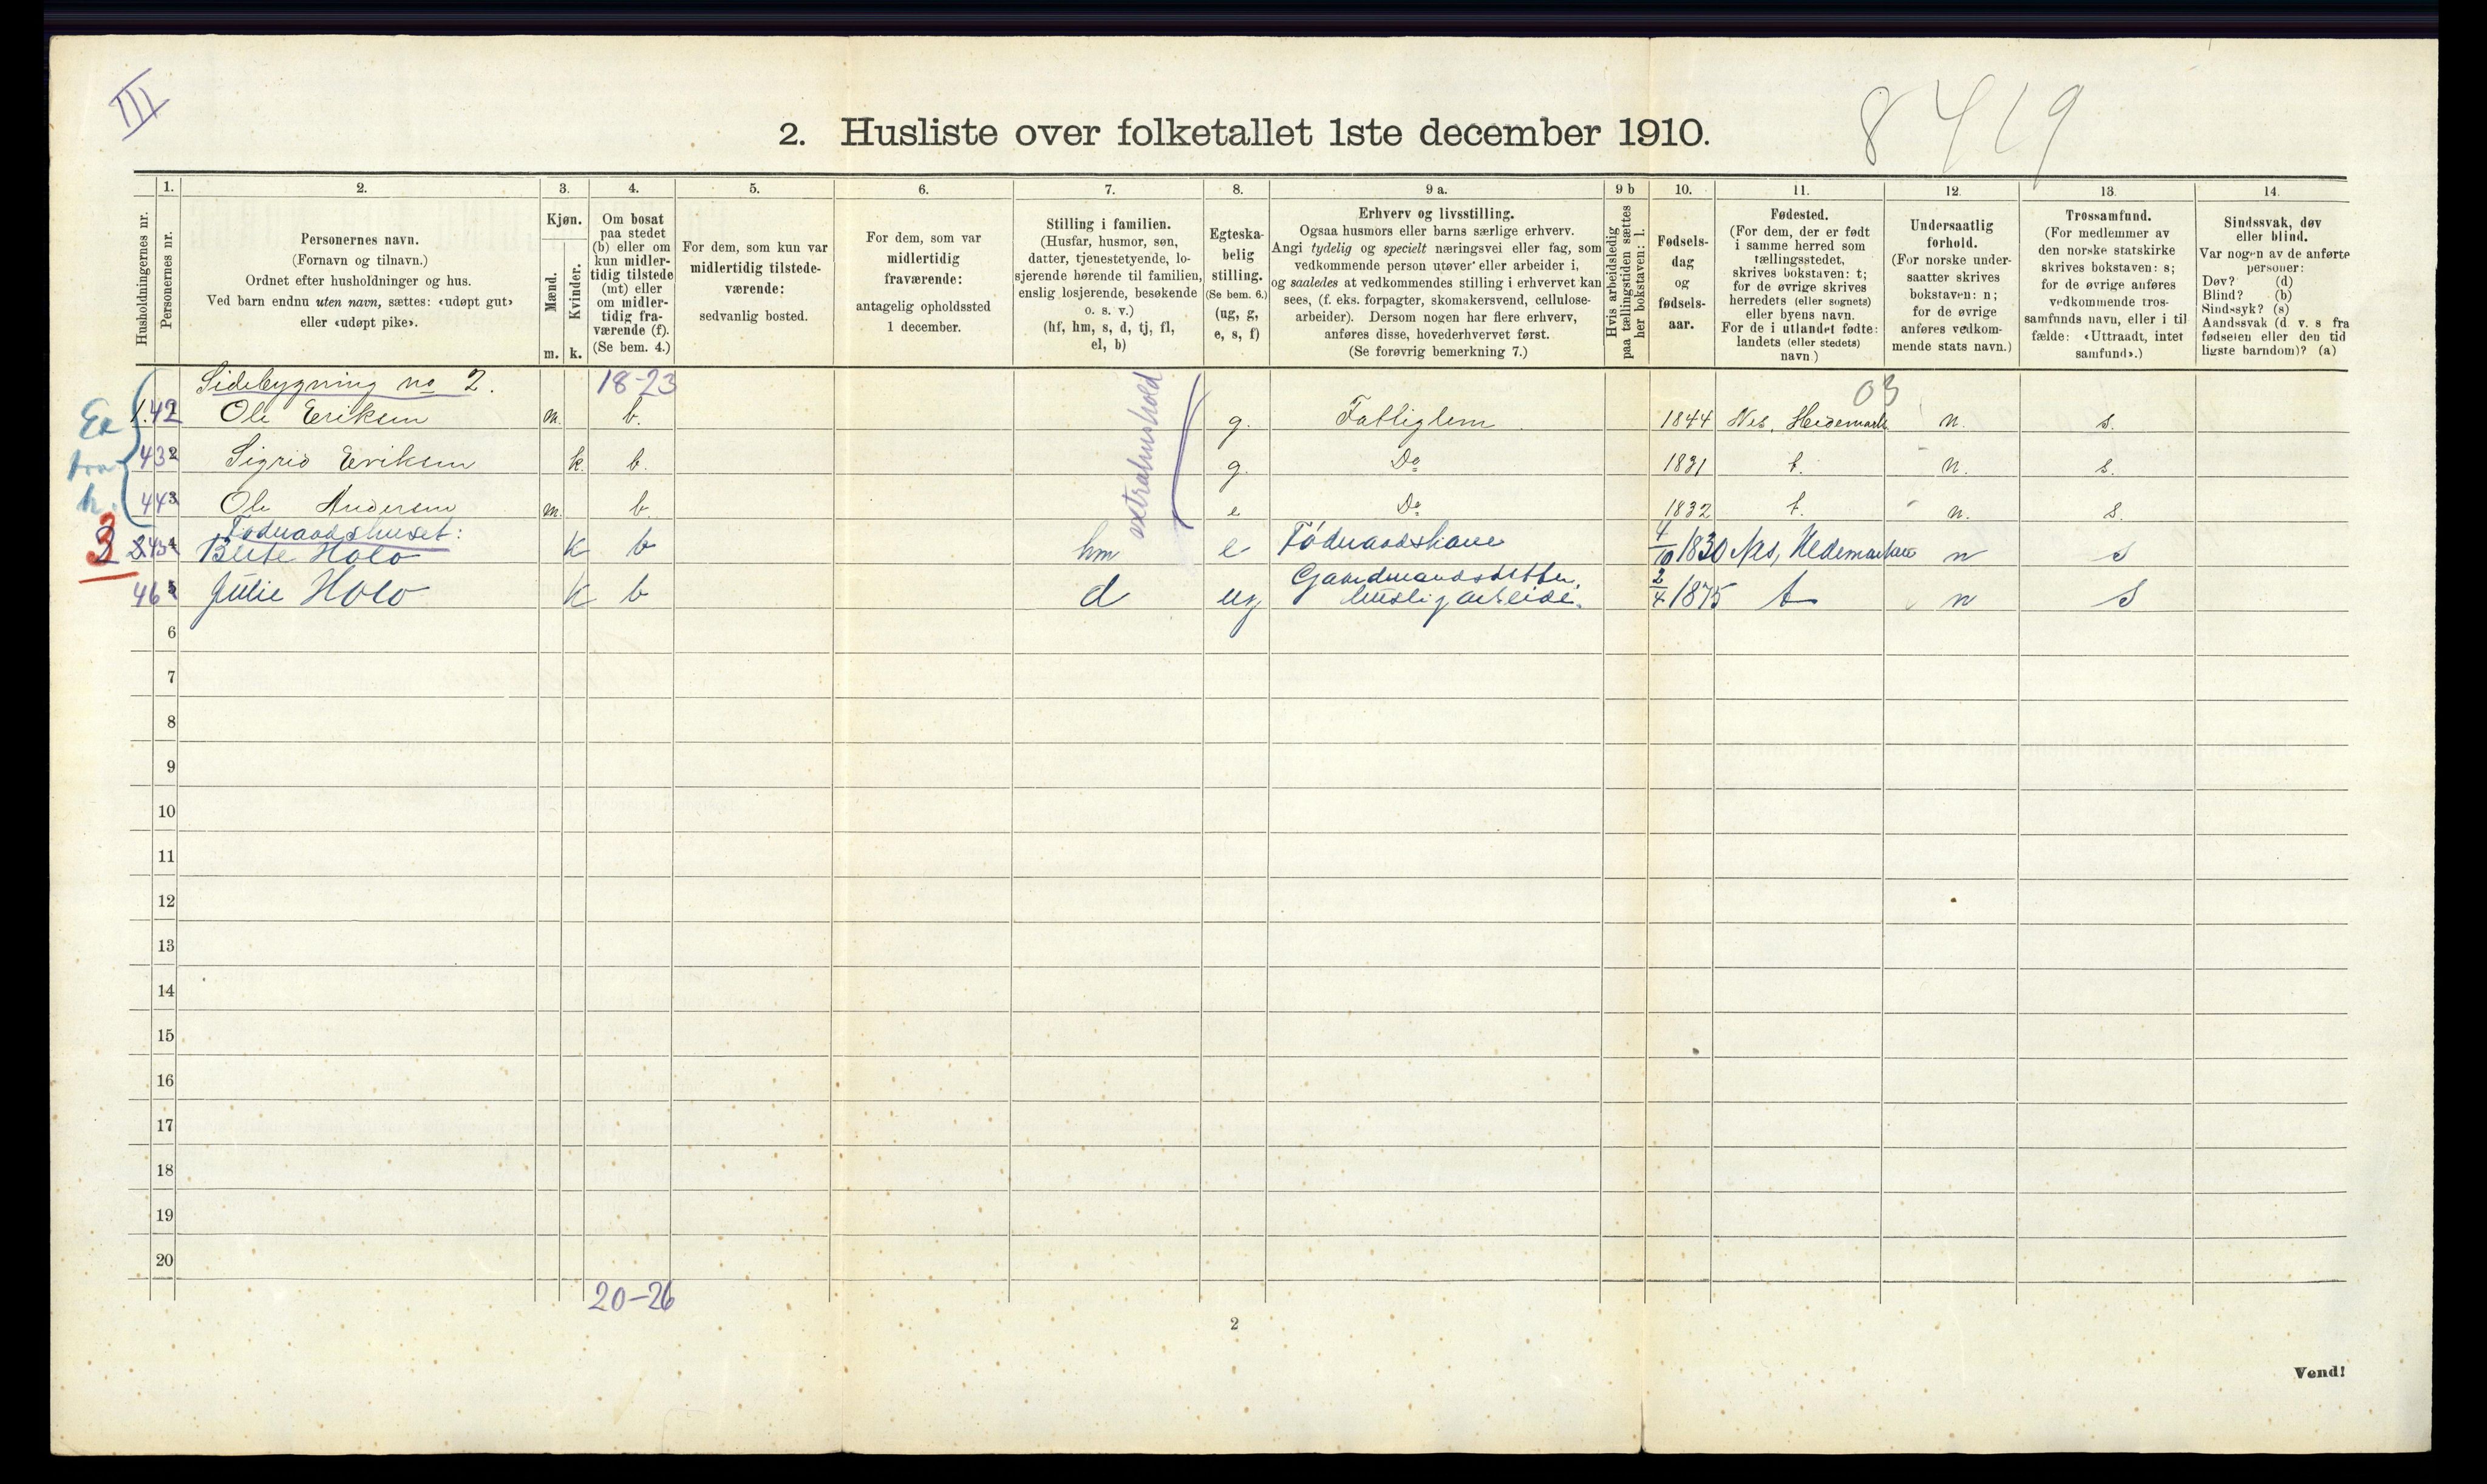 III
8419
2. Husliste over folketallet 1ste december 1910.
Husholdningernes nr.
1.
Personernes nr.
2.
Personernes navn.
(Fornavn og tilnavn.)
Ordnet efter husholdninger og hus.
Ved barn endnu uten navn, sættes: «udøpt gut»
eller «udøpt pike».
3.
Kjøn.
Mænd.
Kvinder.
m. k.
4.
Om bosat
paa stedet
(b) eller om
kun midler-
tidig tilstede
(mt) eller
om midler-
tidig fra-
værende (f).
(Se bem. 4.)
5.
For dem, som kun var
midlertidig tilstede-
værende:
sedvanlig bosted.
6.
For dem, som var
midlertidig
fraværende:
antagelig opholdssted
1 december.
7.
Stilling i familien.
(Husfar, husmor, søn,
datter, tjenestetyende, lo-
sjerende hørende til familien,
enslig losjerende, besøkende
o. s. v.)
(hf, hm, s, d, tj, fl,
el, b)
8.
Egteska-
belig
stilling.
(Se bem. 6.)
(ug, g,
e, s, f)
9 a.
Erhverv og livsstilling.
Ogsaa husmors eller barns særlige erhverv.
Angi tydelig og specielt næringsvei eller fag, som
vedkommende person utøver eller arbeider i,
og saaledes at vedkommendes stilling i erhvervet kan
sees, (f. eks. forpagter, skomakersvend, cellulose-
arbeider). Dersom nogen har flere erhverv,
anføres disse, hovederhvervet først.
(Se forøvrig bemerkning 7.)
9 b
Hvis arbeidsledig
paa tællingstiden sættes
her bokstaven: l.
10.
Fødsels-
dag
og
fødsels-
aar.
11.
Fødested.
(For dem, der er født
i samme herred som
tællingsstedet,
skrives bokstaven: t;
for de øvrige skrives
herredets (eller sognets)
eller byens navn.
For de i utlandet fødte:
landets (eller stedets)
navn)
12.
Undersaatlig
forhold.
(For norske under-
saatter skrives
bokstaven: n;
for de øvrige
anføres vedkom-
mende stats navn.)
13.
Trossamfund.
(For medlemmer av
den norske statskirke
skrives bokstaven: s;
for de øvrige anføres
vedkommende tros-
samfunds navn, eller i til
fælde: «Uttraadt, intet
samfund».)
14.
Sindssvak, døv
eller blind.
Var nogen av de anførte
personer:
Døv? (d)
Blind? (b)
Sindssyk? (s)
Aandssvak (d. v. s fra
fødselen eller den tid
ligste barndom)? (a)
Sidebygning no 2. 18-23 03
Extra h.
extrahushold
1. 42 Ole Eriksen m. b. g. Fattiglem 1844 Nes, Hedemark n. s.
43 2 Sigrid Eriksen k. b. g. Do 1831 t. n. s.
44 3 Ole Andersen m. b. e Do 1832 t. n. s.
Føderaadshuset:
3 2 45 4 Berte Holo k b hm e Føderaadskone 4/10 1830 Nes, Hedemarken n s
46 5 Julie Holo k b d ug Gaardmandsdatter, huslig arbeide. 2/4 1875 t n s
6
7
8
9
10
11
12
13
14
15
16
17
18
19
20
20-26
2
Vend!